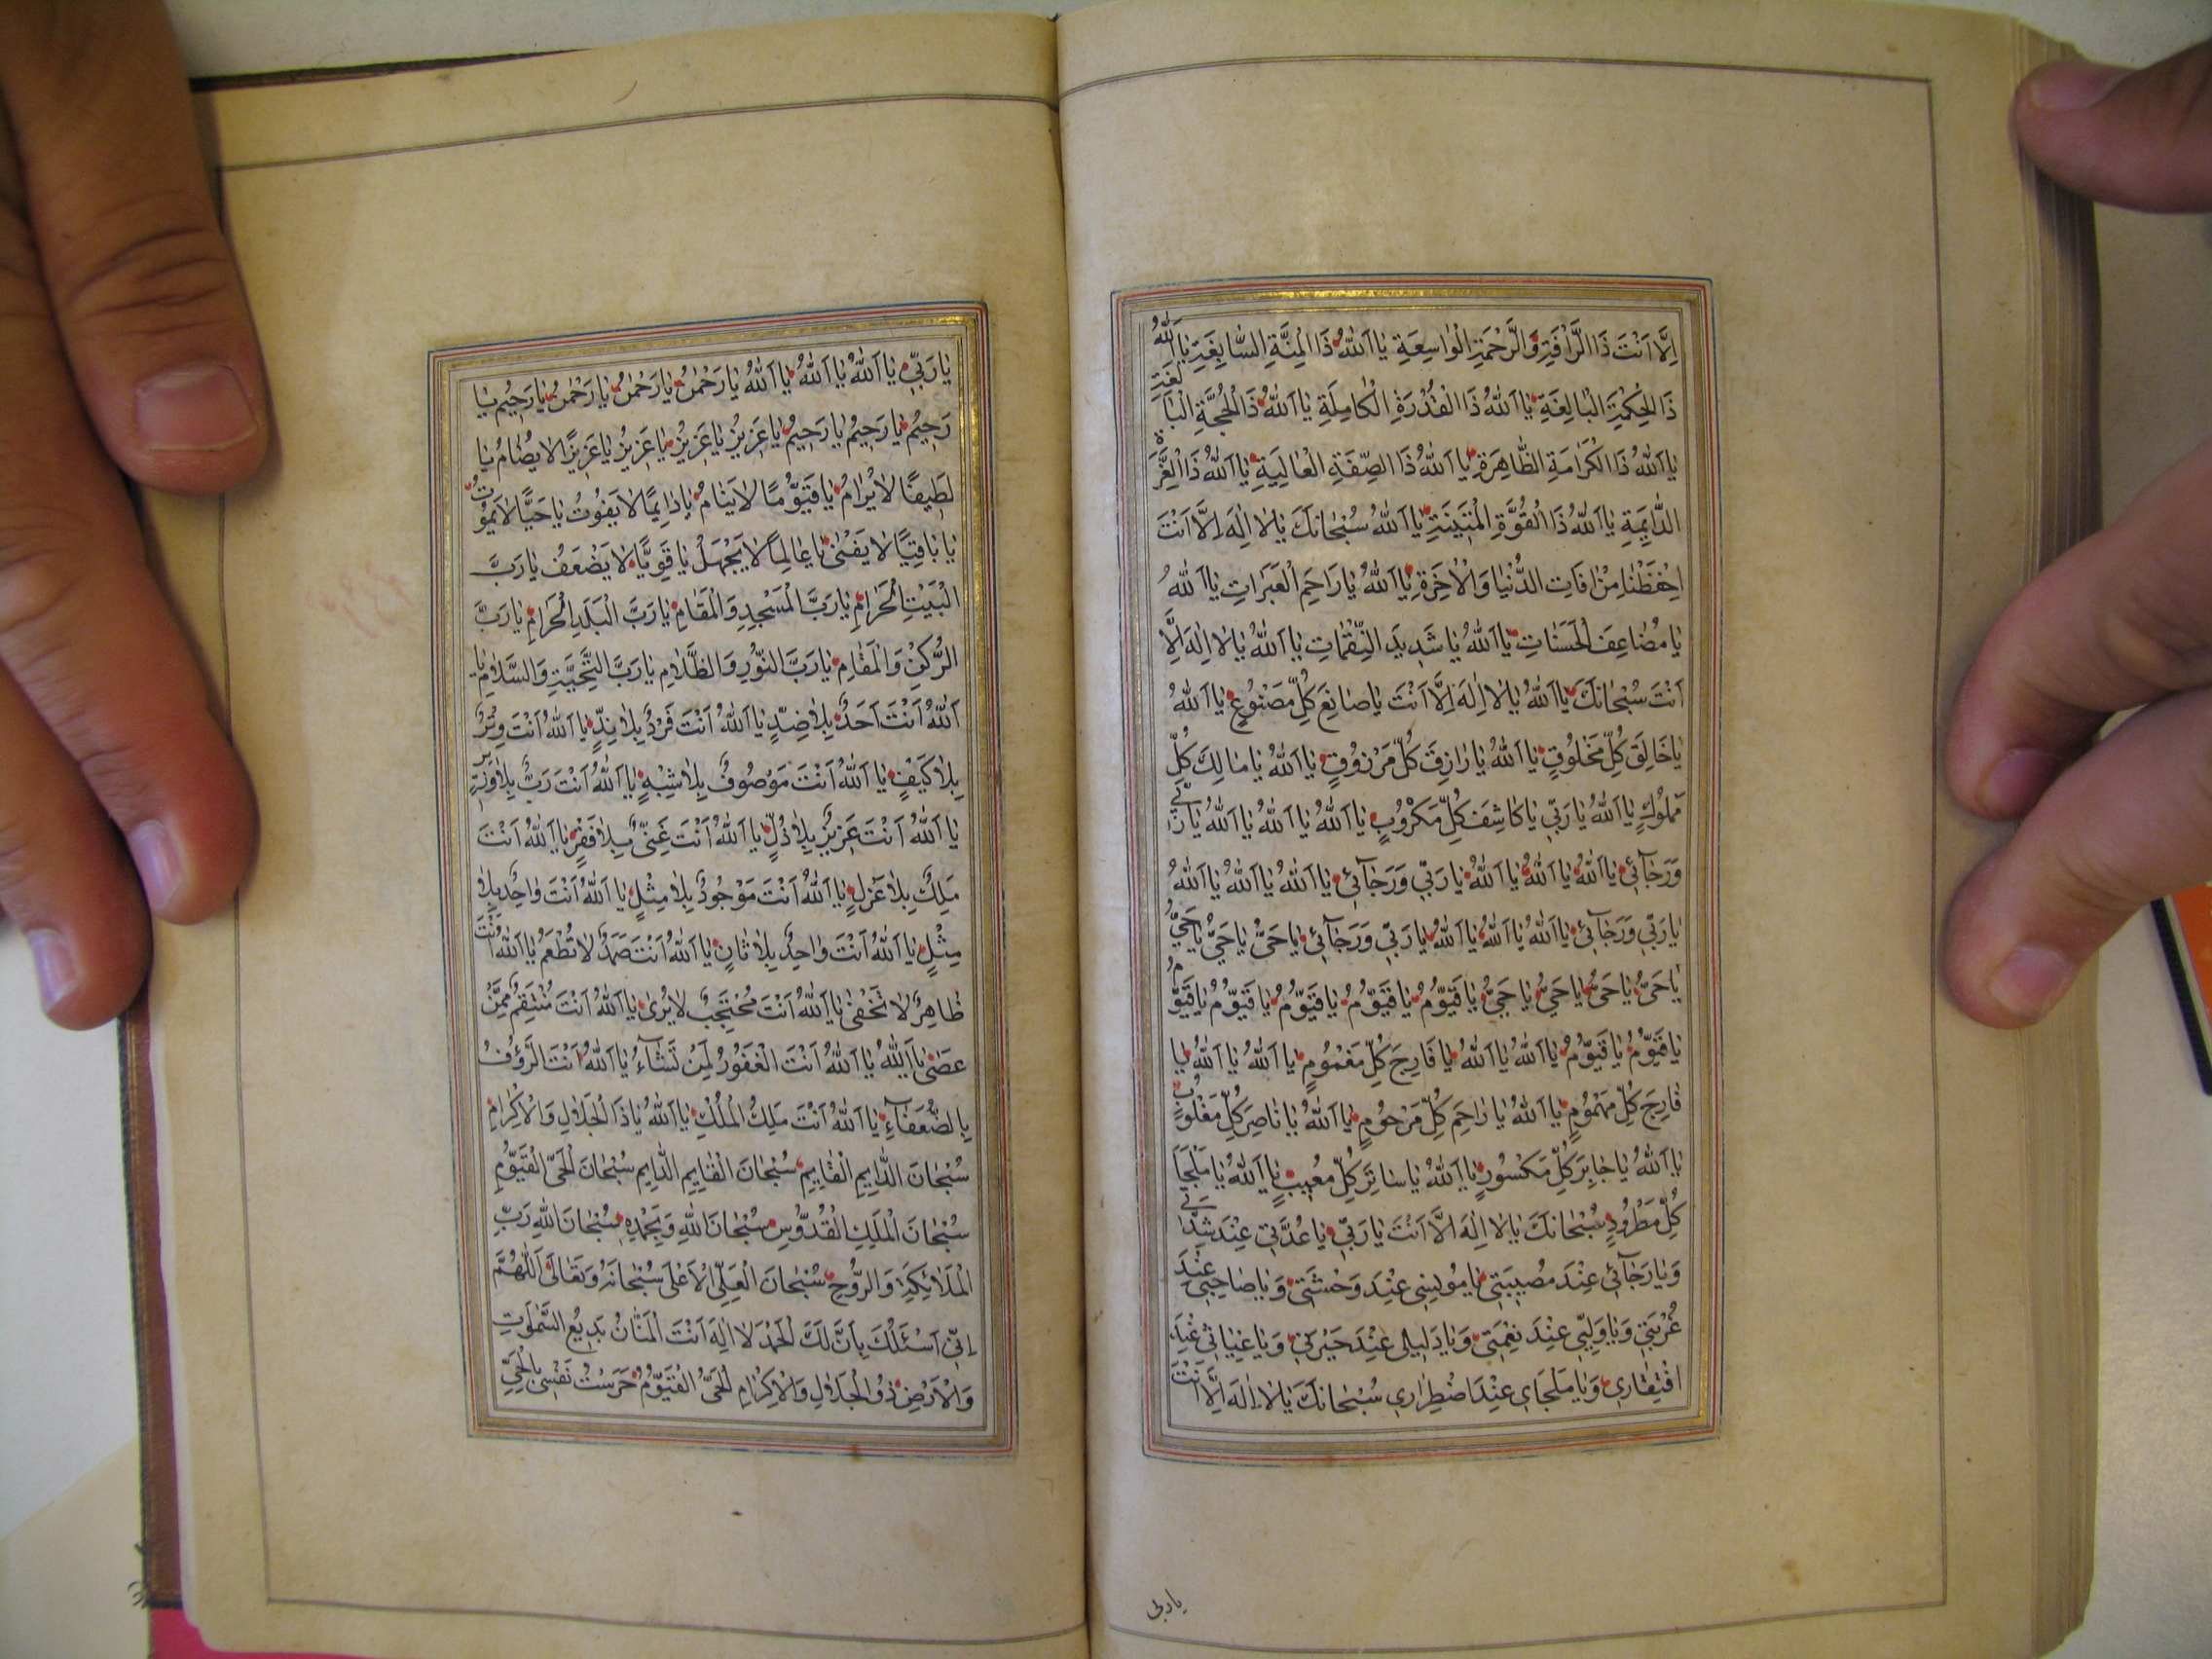 اِلَّا اَنْتَ ذَا الرَّافَةِ وَالرَّحْمَةِ الْوٰاسِعَةِ يٰا اَللّٰهُ ذَا الْمِنَّةِ السّٰابِغَةِ يٰا اَللّٰهُ
ذَا الْحِكْمَةِ الْبٰالِغَةِ يٰا اَللّٰهُ ذَا الْقُدْرَةِ الْكٰامِلَةِ يٰا اَللّٰهُ ذَا الْحُجَّةِ الْبٰالِغَةِ
يٰا اَللّٰهُ ذَا الْكَرٰامَةِ الظّٰاهِرَةِ يٰا اَللّٰهُ ذَا الصِّفَةِ الْعٰالِيَةِ يٰا اَللّٰهُ ذَا الْعِزَّةِ
الدّٰايِمَةِ يٰا اَللّٰهُ ذَا الْقُوَّةِ الْمَتٖينَةِ يٰا اَللّٰهُ سُبْحٰانَكَ يٰا لٰا اِلٰهَ اِلَّا اَنْتَ
احْفَظْنٰا مِنْ اٰفٰاتِ الدُّنْيٰا وَالْاٰخِرَةِ يٰا اَللّٰهُ يٰا رٰاحِمَ الْعَبَرٰاتِ يٰا اَللّٰهُ
يٰا مُضٰاعِفَ الْحَسَنٰاتِ يٰا اَللّٰهُ يٰا شَدٖيدَ النَّقِمٰاتِ يٰا اَللّٰهُ يٰا لٰا اِلٰهَ اِلَّا
اَنْتَ سُبْحٰانَكَ يٰا اَللّٰهُ يٰا لٰا اِلٰهَ اِلَّا اَنْتَ يٰا صٰانِعَ كُلِّ مَصْنُوعٍ يٰا اَللّٰهُ
يٰا خٰالِقَ كُلِّ مَخْلُوقٍ يٰا اَللّٰهُ يٰا رٰازِقَ كُلِّ مَرْزُوقٍ يٰا اَللّٰهُ يٰا مٰالِكَ كُلِّ
مَمْلُوكٍ يٰا اَللّٰهُ يٰا رَبّٖي يٰا كٰاشِفَ كُلِّ مَكْرُوبٍ يٰا اَللّٰهُ يٰا اَللّٰهُ يٰا اَللّٰهُ يٰا رَبّٖي
وَرَجٰآئٖي يٰا اَللّٰهُ يٰا اَللّٰهُ يٰا اَللّٰهُ يٰا رَبّٖي وَرَجٰآئٖي يٰا اَللّٰهُ يٰا اَللّٰهُ يٰا اَللّٰهُ
يٰا رَبّٖي وَرَجٰآئٖي يٰا اَللّٰهُ يٰا اَللّٰهُ يٰا اَللّٰهُ يٰا رَبّٖي وَرَجٰآئٖي يٰا حَيُّ يٰا حَيُّ يٰا حَيُّ
يٰا حَيُّ يٰا حَيُّ يٰا حَيُّ يٰا حَيُّ يٰا قَيُّومُ يٰا قَيُّومُ يٰا قَيُّومُ يٰا قَيُّومُ يٰا قَيُّومُ
يٰا قَيُّومُ يٰا قَيُّومُ يٰا اَللّٰهُ يٰا اَللّٰهُ يٰا فٰارِجَ كُلِّ مَغْمُومٍ يٰا اَللّٰهُ يٰا اَللّٰهُ يٰا
فٰارِجَ كُلِّ مَهْمُومٍ يٰا اَللّٰهُ يٰا رٰاحِمَ كُلِّ مَرْحُومٍ يٰا اَللّٰهُ يٰا نٰاصِرَ كُلِّ مَغْلُوبٍ
يٰا اَللّٰهُ يٰا جٰابِرَ كُلِّ مَكْسُورٍ يٰا اَللّٰهُ يٰا سٰاتِرَ كُلِّ مَعْيُوبٍ يٰا اَللّٰهُ يٰا مَلْجَأَ
كُلِّ مَطْرُودٍ سُبْحٰانَكَ يٰا لٰا اِلٰهَ اِلَّا اَنْتَ يٰا رَبّٖي يٰا عُدَّتٖي عِنْدَ شِدَّتٖي
وَيٰا رَجٰآئٖي عِنْدَ مُصٖيبَتٖي يٰا مُونِسٖي عِنْدَ وَحْشَتٖي وَيٰا صٰاحِبٖي عِنْدَ
غُرْبَتٖي وَيٰا وَلِيّٖي عِنْدَ نِعْمَتٖي وَيٰا دَلٖيلٖي عِنْدَ حَيْرَتٖي وَيٰا غِيٰاثٖي عِنْدَ
افْتِقٰارٖي وَيٰا مَلْجَاٖي عِنْدَ اضْطِرٰارٖي سُبْحٰانَكَ يٰا لٰا اِلٰهَ اِلَّا اَنْتَ
يا ربى
يٰا رَبّٖي يٰا اَللّٰهُ يٰا اَللّٰهُ يٰا اَللّٰهُ يٰا رَحْمٰنُ يٰا رَحْمٰنُ يٰا رَحْمٰنُ يٰا رَحٖيمُ يٰا
رَحٖيمُ يٰا رَحٖيمُ يٰا رَحٖيمُ يٰا عَزٖيزُ يٰا عَزٖيزُ يٰا عَزٖيزُ يٰا عَزٖيزًا لٰا يُضٰامُ يٰا
لَطٖيفًا لٰا يُرٰامُ يٰا قَيُّومًا لٰا يَنٰامُ يٰا دٰايِمًا لٰا يَفُوتُ يٰا حَيًّا لٰا يَمُوتُ
يٰا بٰاقِيًا لٰا يَفْنٰى يٰا عٰالِمًا لٰا يَجْهَلُ يٰا قَوِيًّا لٰا يَضْعَفُ يٰا رَبَّ
الْبَيْتِ الْحَرٰامِ يٰا رَبَّ الْمَسْجِدِ وَالْمَقٰامِ يٰا رَبَّ الْبَلَدِ الْحَرٰامِ يٰا رَبَّ
الرُّكْنِ وَالْمَقٰامِ يٰا رَبَّ النُّورِ وَالظَّلٰامِ يٰا رَبَّ التَّحِيَّةِ وَالسَّلٰامِ يٰا
اَللّٰهُ اَنْتَ اَحَدٌ بِلٰا ضِدٍّ يٰا اَللّٰهُ اَنْتَ فَرْدٌ بِلٰا نِدٍّ يٰا اَللّٰهُ اَنْتَ وِتْرٌ
بِلٰا كَيْفٍ يٰا اَللّٰهُ اَنْتَ مَوْصُوفٌ بِلٰا شِبْهٍ يٰا اَللّٰهُ اَنْتَ رَبٌّ بِلٰا وَزٖيرٍ
يٰا اَللّٰهُ اَنْتَ عَزٖيزٌ بِلٰا ذُلٍّ يٰا اَللّٰهُ اَنْتَ غَنِيٌّ بِلٰا فَقْرٍ يٰا اَللّٰهُ اَنْتَ
مَلِكٌ بِلٰا عَزْلٍ يٰا اَللّٰهُ اَنْتَ مَوْجُودٌ بِلٰا مِثْلٍ يٰا اَللّٰهُ اَنْتَ وٰاحِدٌ بِلٰا
مِثْلٍ يٰا اَللّٰهُ اَنْتَ وٰاحِدٌ بِلٰا ثٰانٍ يٰا اَللّٰهُ اَنْتَ صَمَدٌ لٰا تُطْعَمُ يٰا اَللّٰهُ اَنْتَ
ظٰاهِرٌ لٰا تَخْفٰى يٰا اَللّٰهُ اَنْتَ مُحْتَجِبٌ لٰا يُرٰى يٰا اَللّٰهُ اَنْتَ مُنْتَقِمٌ مِمَّنْ
عَصٰى يٰا اَللّٰهُ يٰا اَللّٰهُ اَنْتَ الْغَفُورُ لِمَنْ تَشٰآءُ يٰا اَللّٰهُ اَنْتَ الرَّؤُفُ
بِالضُّعَفٰآءِ يٰا اَللّٰهُ اَنْتَ مَلِكُ الْمُلْكِ يٰا اَللّٰهُ يٰا ذَا الْجَلٰالِ وَالْاِكْرٰامِ
سُبْحٰانَ الدّٰايِمِ الْقٰايِمِ سُبْحٰانَ الْقٰايِمِ الدّٰايِمِ سُبْحٰانَ الْحَيِّ الْقَيُّومِ
سُبْحٰانَ الْمَلِكِ الْقُدُّوسِ سُبْحٰانَ اللّٰهِ وَبِحَمْدِهِ سُبْحٰانَ اللّٰهِ رَبِّ
الْمَلٰائِكَةِ وَالرُّوحِ سُبْحٰانَ الْعَلِيِّ الْاَعْلٰى سُبْحٰانَهُ وَتَعٰالٰى اَللّٰهُمَّ
اِنّٖي اَسْئَلُكَ بِاَنَّ لَكَ الْحَمْدَ لٰا اِلٰهَ اَنْتَ الْمَنّٰانُ بَدٖيعُ السَّمٰوٰتِ
وَالْاَرْضِ ذُو الْجَلٰالِ وَالْاِكْرٰامِ الْحَيُّ الْقَيُّومُ حَرَسْتُ نَفْسٖي بِالْحَيِّ